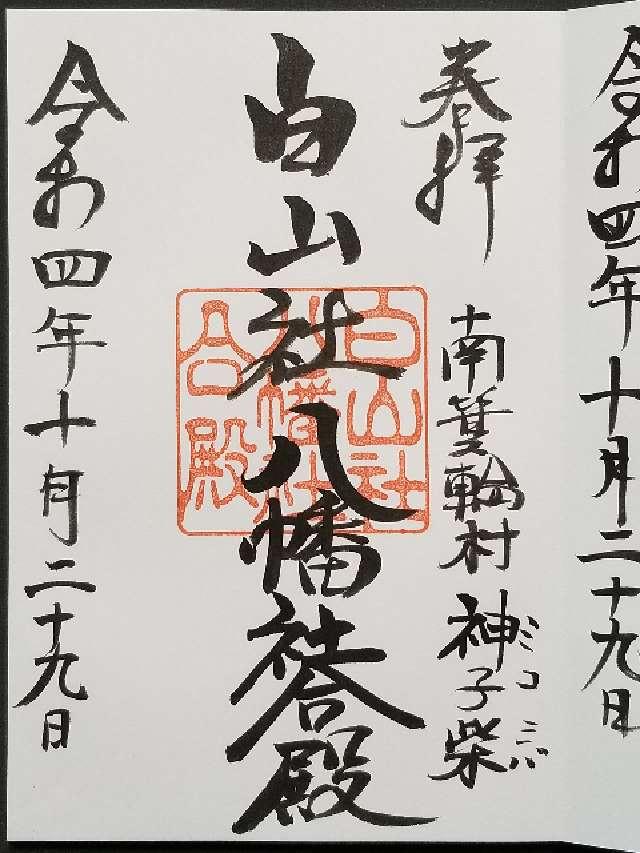 令和四年十月二十九日
奉拝
南箕輪村 神子柴
ミコシバ
白山社八幡社合殿
白山社
八幡社
合殿
令和四年十月二十九日